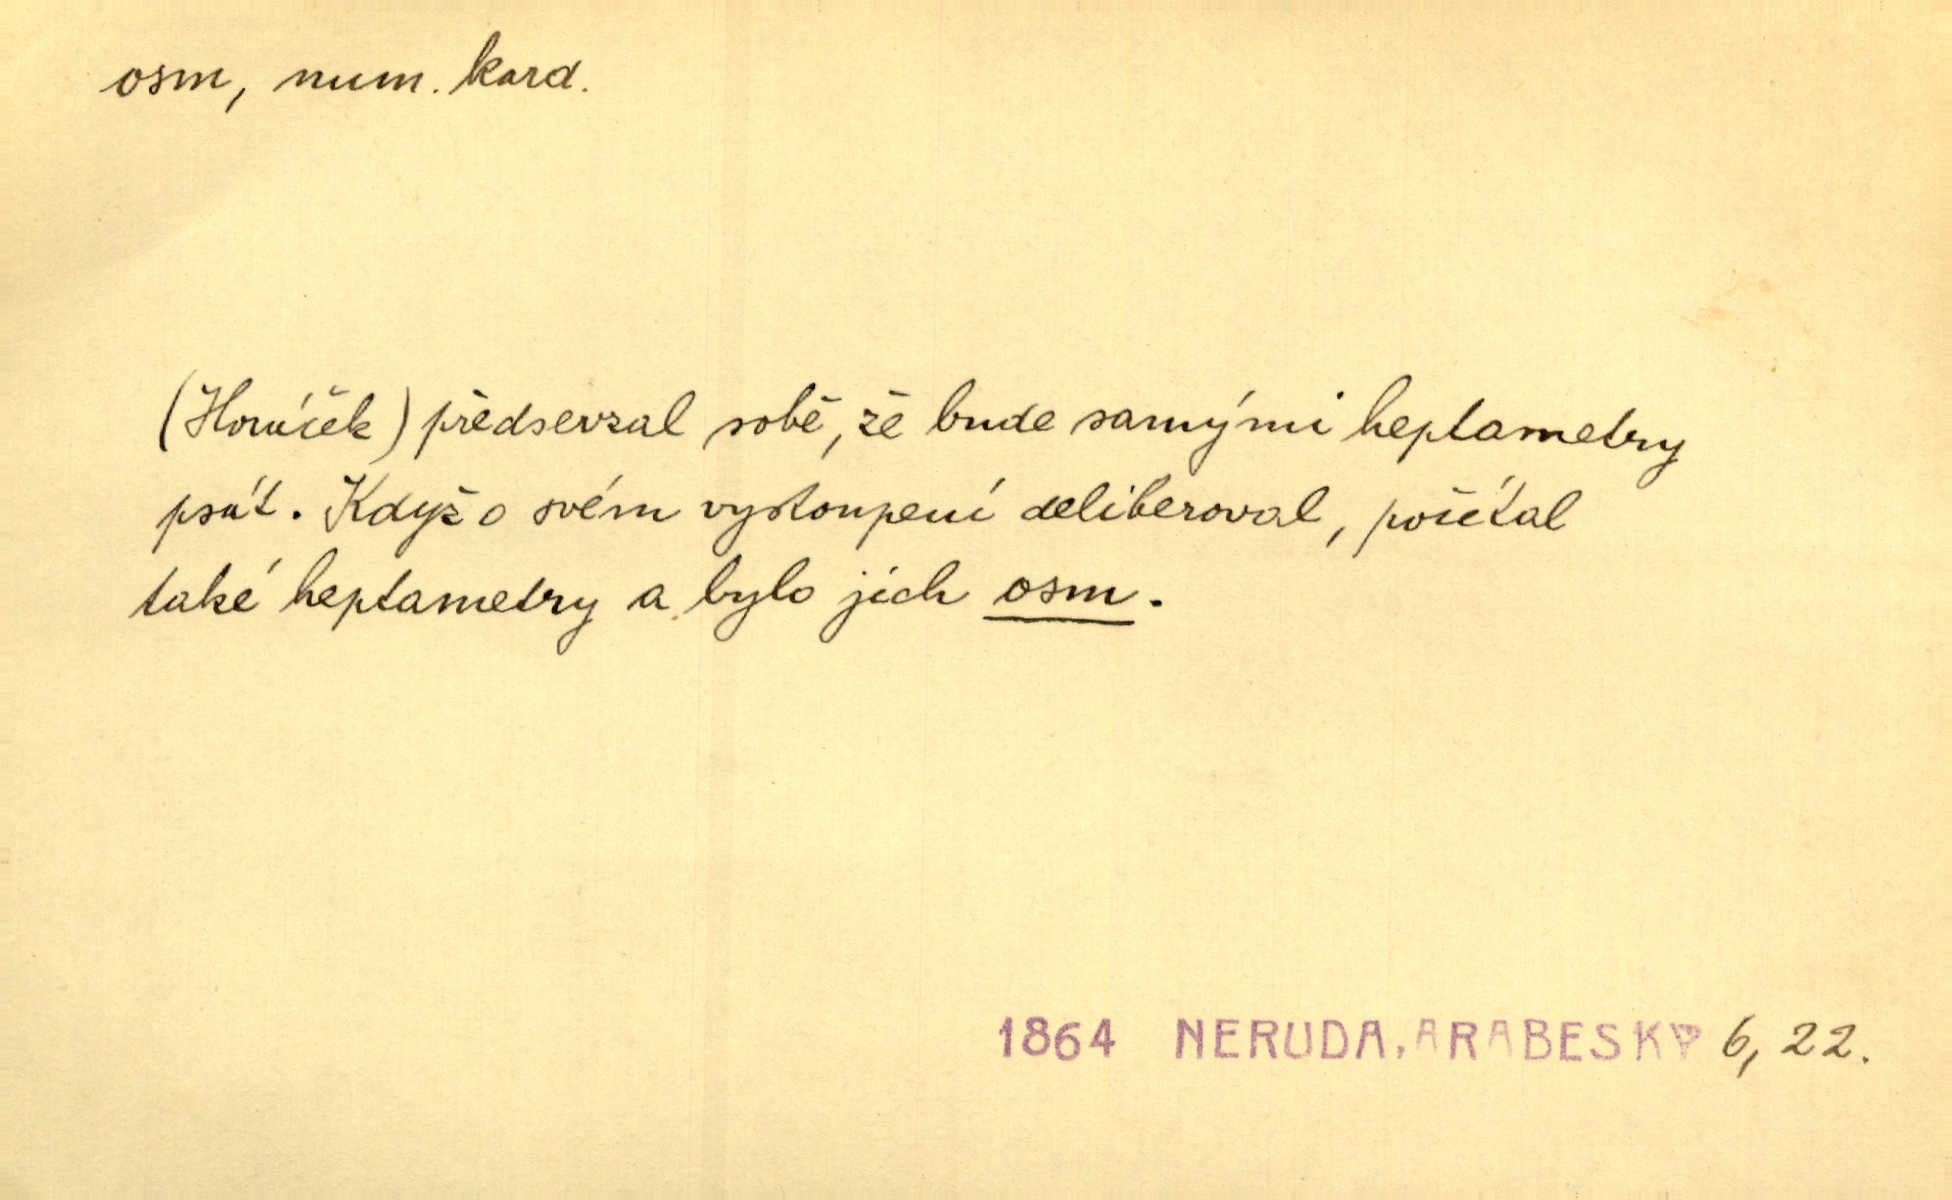 osm, num. kard.
(Horáček) předsevzal sobě, že bude samými heptametry
psát. Když o svém vystoupení deliberoval, počítal
také heptametry a bylo jich osm.
1864 NERUDA, ARABESKY 6, 22.